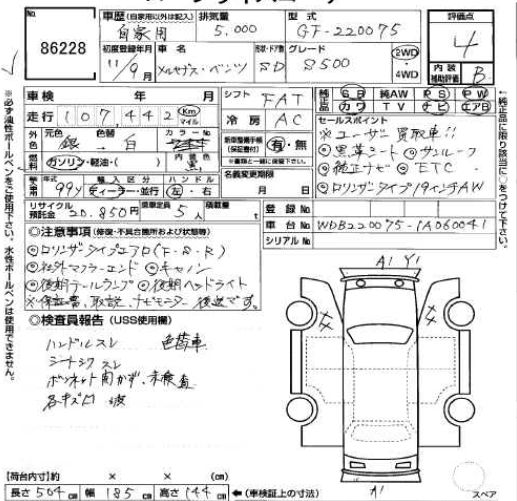 No.
86228
車歴 (自家用以外は記入) 自家用
排気量 5,000
型式 GF-220075
評価点 4
初度登録年月 11/9月
車名 メルセデス・ベンツ
形状・ドア数 SD
グレード S500
2WD
・4WD
内装補助評価 B
車検 年 月
シフト FAT
純正品 SR 純AW PS PW
カワ TV ナビ エアB
走行 107,442 Km マイル
冷房 AC
セールスポイント
※ユーザー買取車!!
外色 元色 銀 色替 白 カラーNo.
◎黒革シート ◎サンルーフ
燃料 ガソリン・軽油・( ) 内装色 黒
新車整備手帳(保証書付) 有・無
◎純正ナビ ◎ETC
名義変更期限 月 日
◎ロリンザータイプ19インチAW
年式 99y 輸入区分 ディーラー・並行 ハンドル 左・右
リサイクル預託金 20,850円 乗車定員 5人 積載量 t
登録No.
車台No. WDB220075-1A060041
シリアルNo.
◎注意事項 (修復・不具合箇所および状態等)
◎ロリンザータイプエアロ(F・S・R)
◎社外マフラーエンド ◎キャノン
◎後期テールランプ ◎後期ヘッドライト
※保証書、取説、ナビモーター後送です。
◎検査員報告 (USS使用欄)
ハンドルスレ 色替車
シートシワスレ
ボンネット開かず、未検査
各キズ凹 波
A1 Y1
A1
【荷台内寸】約 × × (cm)
長さ 504 cm 幅 185 cm 高さ 144 cm ←(車検証上の寸法)
スペア
※必ず油性ボールペンをご使用下さい。水性ボールペンは使用できません。
純正品に限り該当に○して下さい